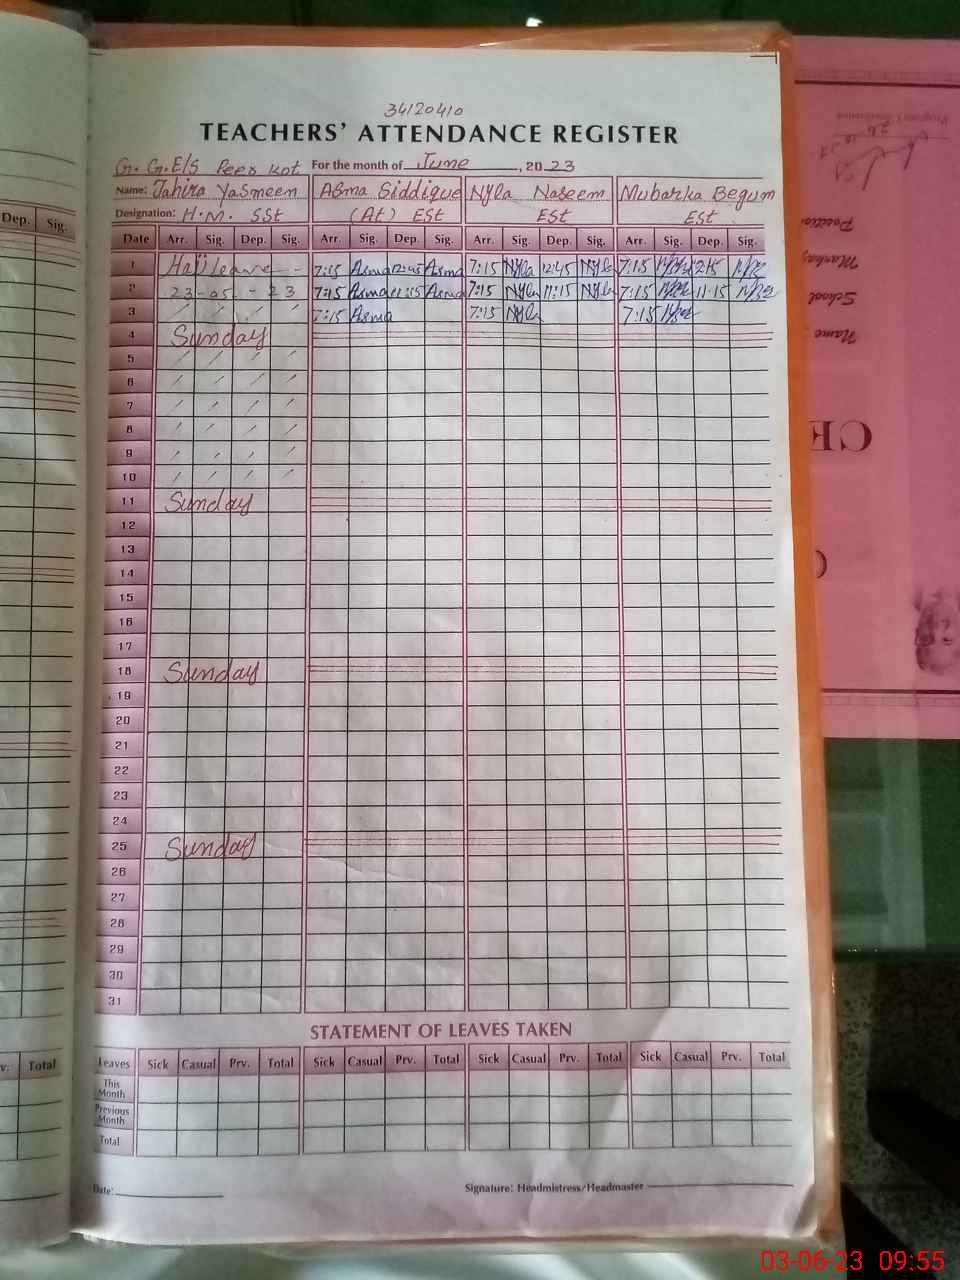 34120410
TEACHERS' ATTENDANCE REGISTER
G. G.E/S Peer Kot For the month of June, 2023
Name: Tahira Yasmeen Asma Siddique Nyla Naseem Mubarka Begum
Designation: H.M. SSt (At) ESt ESt ESt
Date Arr. Sig. Dep. Sig. Arr. Sig. Dep. Sig. Arr. Sig. Dep. Sig. Arr. Sig. Dep. Sig.
1 Hajj leave - 7:15 Asma 12:45 Asma 7:15 Nyla 12:45 Nyla 7:15
2 23-05 - 23 7:15 Asma 11:15 Asma 7:15 Nyla 11:15 Nyla 7:15 11-15
3 7:15 Asma 7:15 Nyla 7:15
4 Sunday
5
6
7
8
9
10
11 Sunday
12
13
14
15
16
17
18 Sunday
19
20
21
22
23
24
25 Sunday
26
27
28
29
30
31
STATEMENT OF LEAVES TAKEN
Leaves Sick Casual Prv. Total Sick Casual Prv. Total Sick Casual Prv. Total Sick Casual Prv. Total
This
Month
Previous
Month
Total
Date: Signature: Headmistress/Headmaster
Dep. Sig.
v. Total
Position
School
Name
CE
03-06-23 09:55